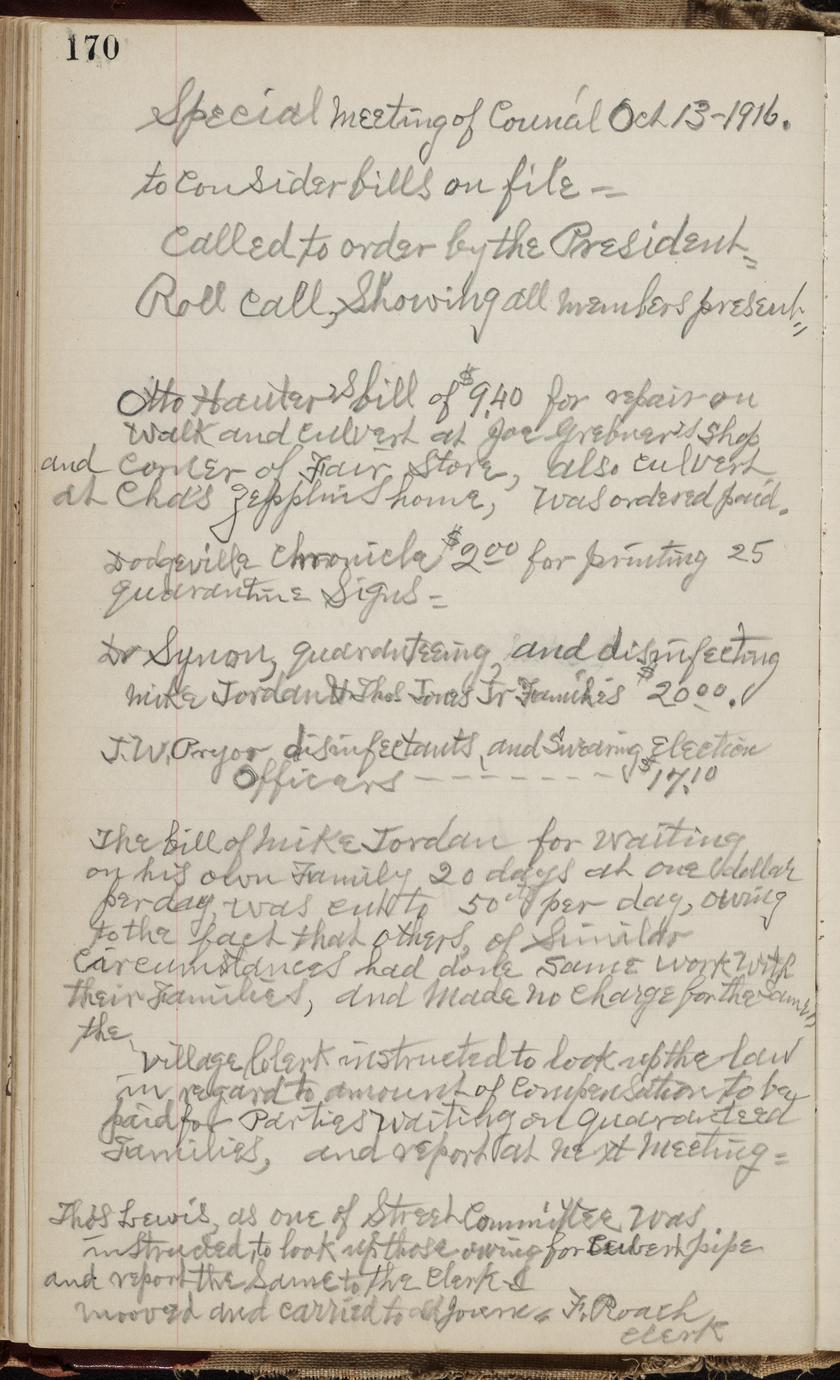 170
Special Meeting of Council Oct 13-1916.
to consider bills on file =
Called to order by the President =
Roll Call, Showing all members present =
Otto Hauter's bill of $9.40 for repair on
walk and culvert at Joe Grebner's Shop
and Corner of Fair Store, also culvert
at Cha's Zepplins home, was ordered paid.
Dodgeville Chronicle $2.00 for printing 25
quarantine Signs =
Dr Synon, quaranteeing, and disinfecting
Mike Jordan & Thos Jones Jr Families $20.00.
J.W. Pryor disinfectants, and Swearing Election
Officers - - - - - - - $17.10
The bill of Mike Jordan for waiting
on his own Family 20 days at one dollar
per day, was cut to 50 cts per day, owing
to the fact that others, of Similar
Circumstances had done same work with
their Families, and Made no Charge for the same
the
Village Clerk instructed to look up the law
in regard to amount of Compensation to be
paid for Parties waiting on quaranteed
Families, and report at next Meeting =
Thos Lewis, as one of Street Committee, was
instructed, to look up those owing for Culvert pipe
and report the Same to the Clerk
mooved and carried to adjourn = F. Roach
Clerk